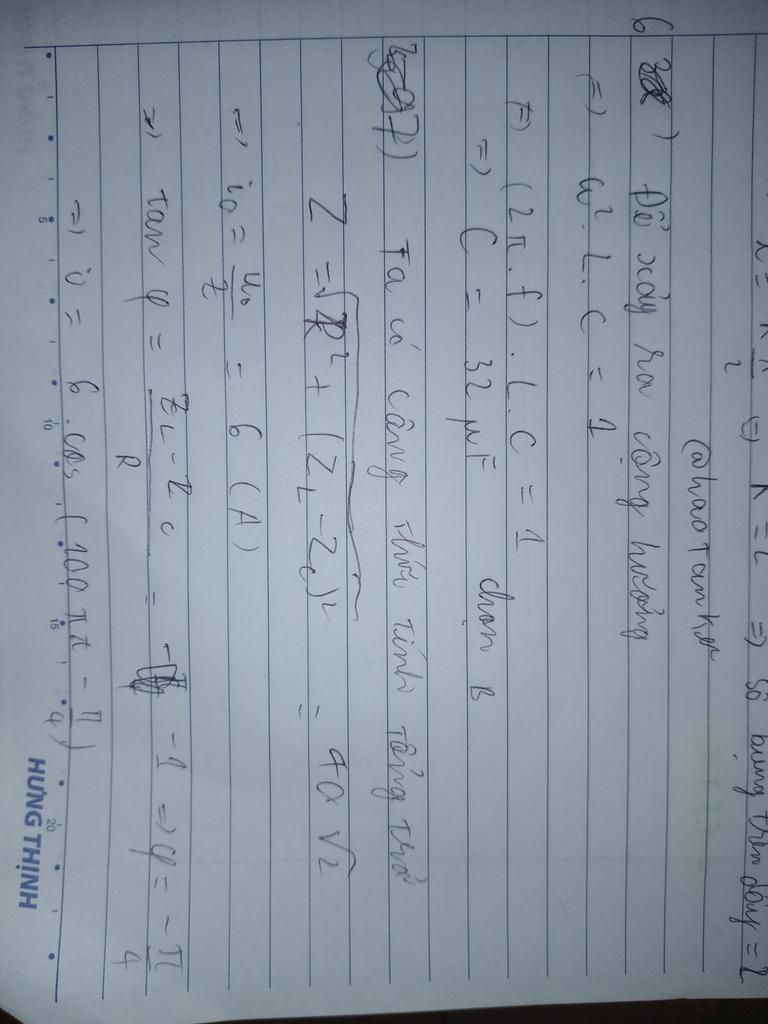 λ = k λ/2 => k = 2 => số bụng trên dây = 2
@haotamhg
6) Để xảy ra cộng hưởng
=) ω². L. C = 1
=) (2π. f). L. C = 1
=) C = 32 μF chọn B
7) Ta có công thức tính tổng trở
Z = √R² + (ZL - Zc)² = 40√2
=> i₀ = u₀/Z = 6 (A)
=> tan φ = ZL - Zc / R = -1 => φ = - π/4
=> i = 6. cos (100πt - π/4)
5 10 15 20
HƯNG THỊNH